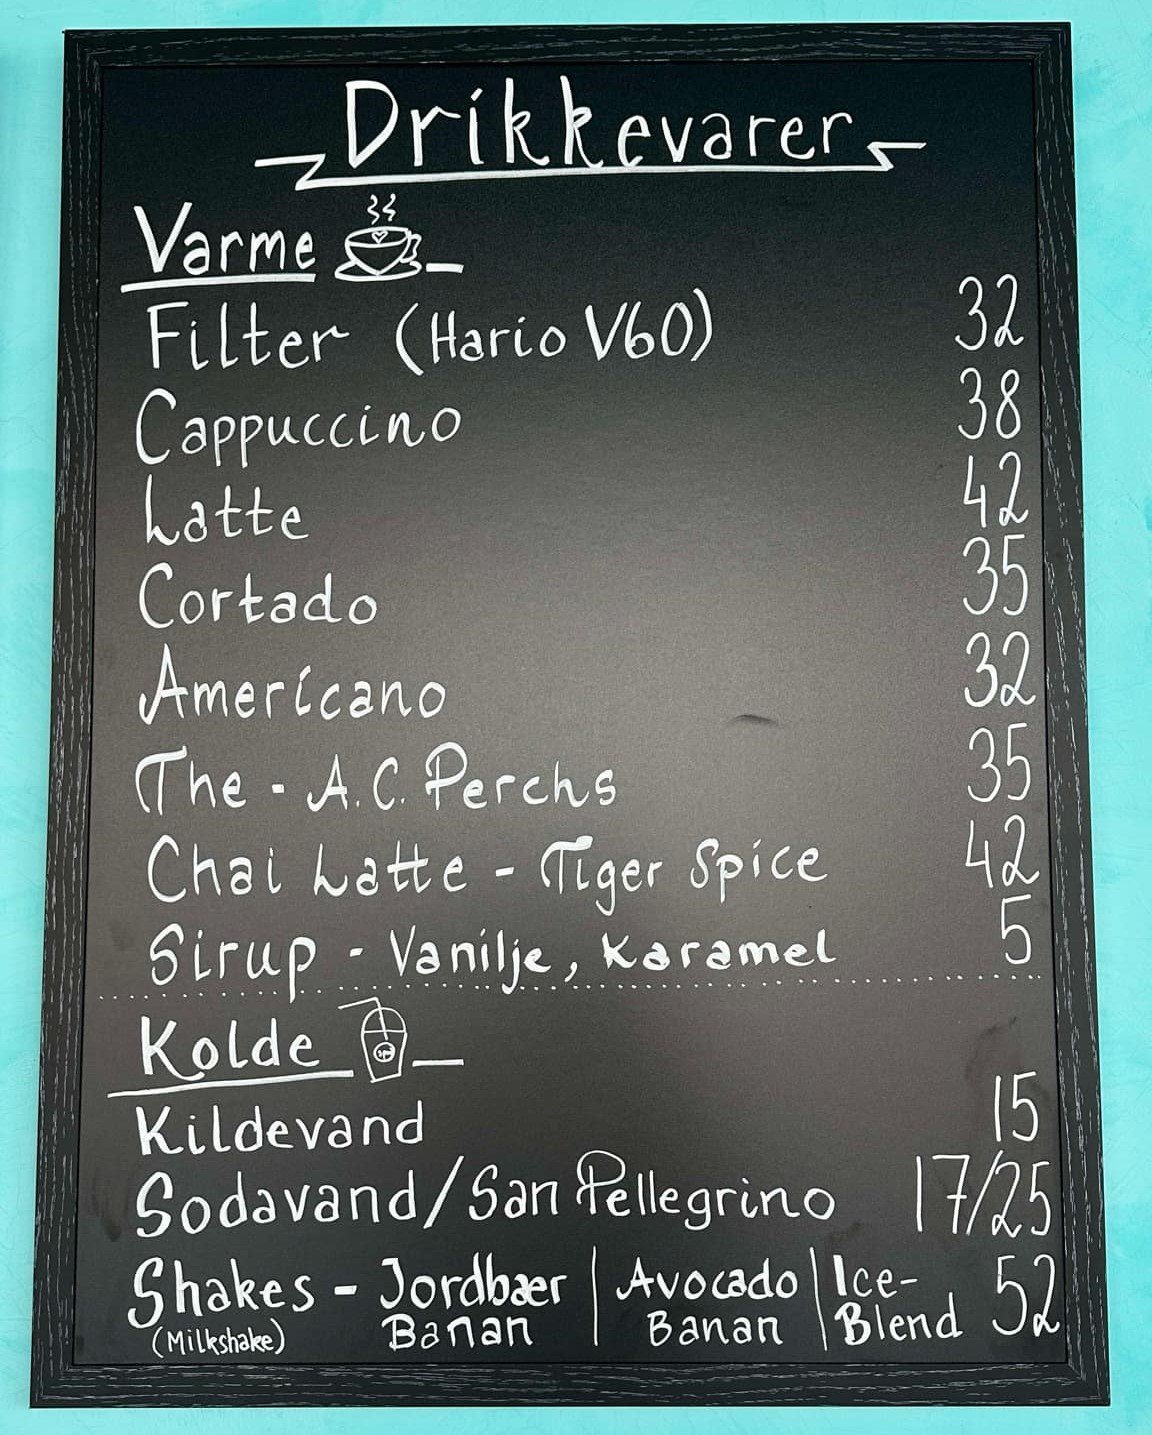 Drikkevarer
Varme
Filter (Hario V60) 32
Cappuccino 38
Latte 42
Cortado 35
Americano 32
The - A.C. Perchs 35
Chai Latte - Tiger Spice 42
Sirup - Vanilje, Karamel 5
Kolde
Kildevand 15
Sodavand/San Pellegrino 17/25
Shakes - Jordbær | Avocado | Ice- 52
(Milkshake) Banan | Banan | Blend